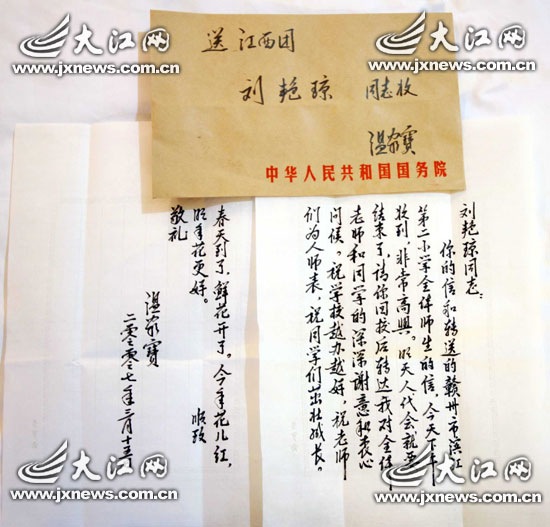 大江网
www.jxnews.com.cn
大江网
www.jxnews.com.cn
送 江西团
刘艳琼 同志收
温家寳
中华人民共和国国务院
刘艳琼同志：
你的信和转送的赣州市滨江
第二小学全体师生的信，今天下午
收到，非常高興。明天人代会就要
结束了，请你回校后转达我对全体
老师和同学的深深谢意和衷心
问候。祝学校越办越好，祝老师
们为人师表，祝同学们茁壮成长。
春天到了，鲜花开了。今年花儿红，
明年花更好。 顺致
敬礼
温家寳
二零零七年三月十五日
大江网
www.jxnews.com.cn
大江网
www.jxnews.com.cn